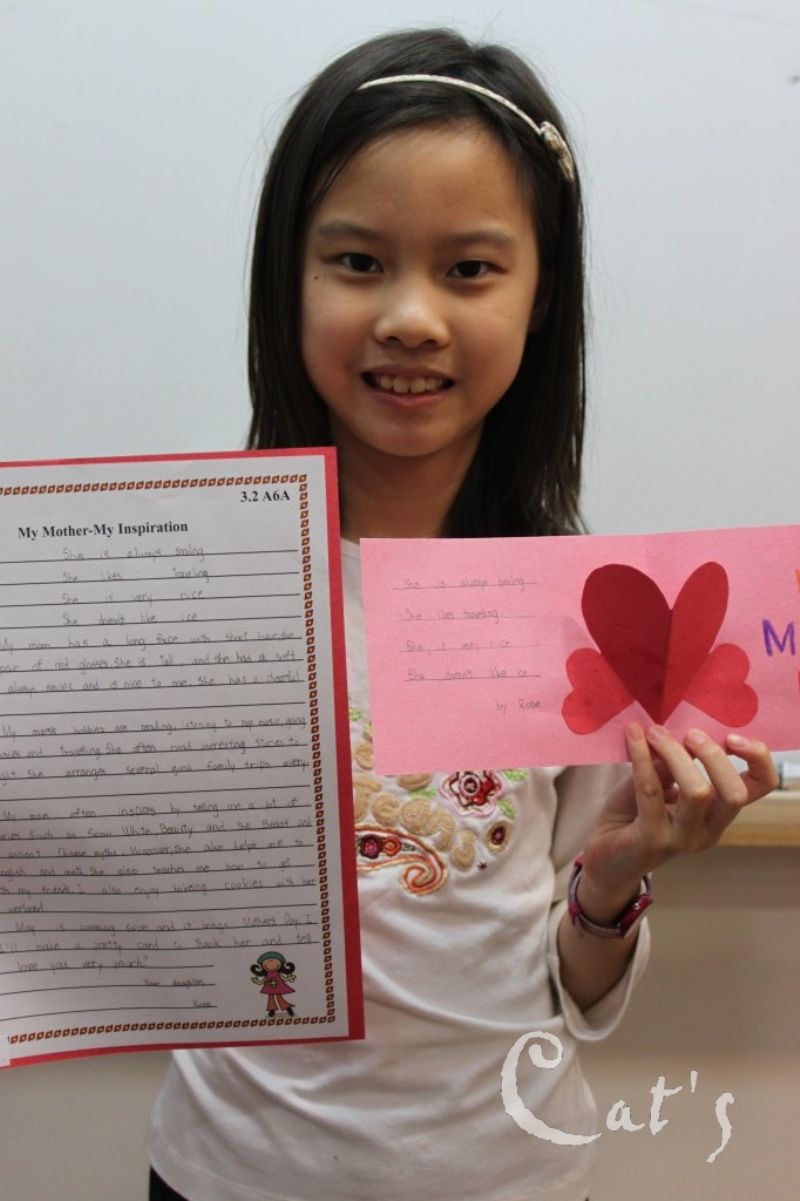 3.2 A6A
My Mother-My Inspiration
She is always smiling
She likes traveling
She is very nice
She doesn't like ice
My mom has a long face with short hair. she
pair of red glasses. She is tall, and she has a soft
always smiles and is nice to me. She has a cheerful
My mom's hobbies are reading, listening to pop music, going
and traveling. She often read interesting stories to
She arranges several great family trips every
My mom often inspires by telling me a lot of
such as Snow White, Beauty and the Beast and
ancient Chinese myths. Moreover, She also helps me to
english and math. She also teaches me how to get
my friends. I also enjoy bakeing cookies with her
weekend.
May is comming soon and it brings Mother's Day. I
make a pretty card to thank her and tell
love you very much."
Your daughter,
Rose
She is always smiling
She likes traveling
She is very nice
She doesn't like ice
by Rose
M
Cat's